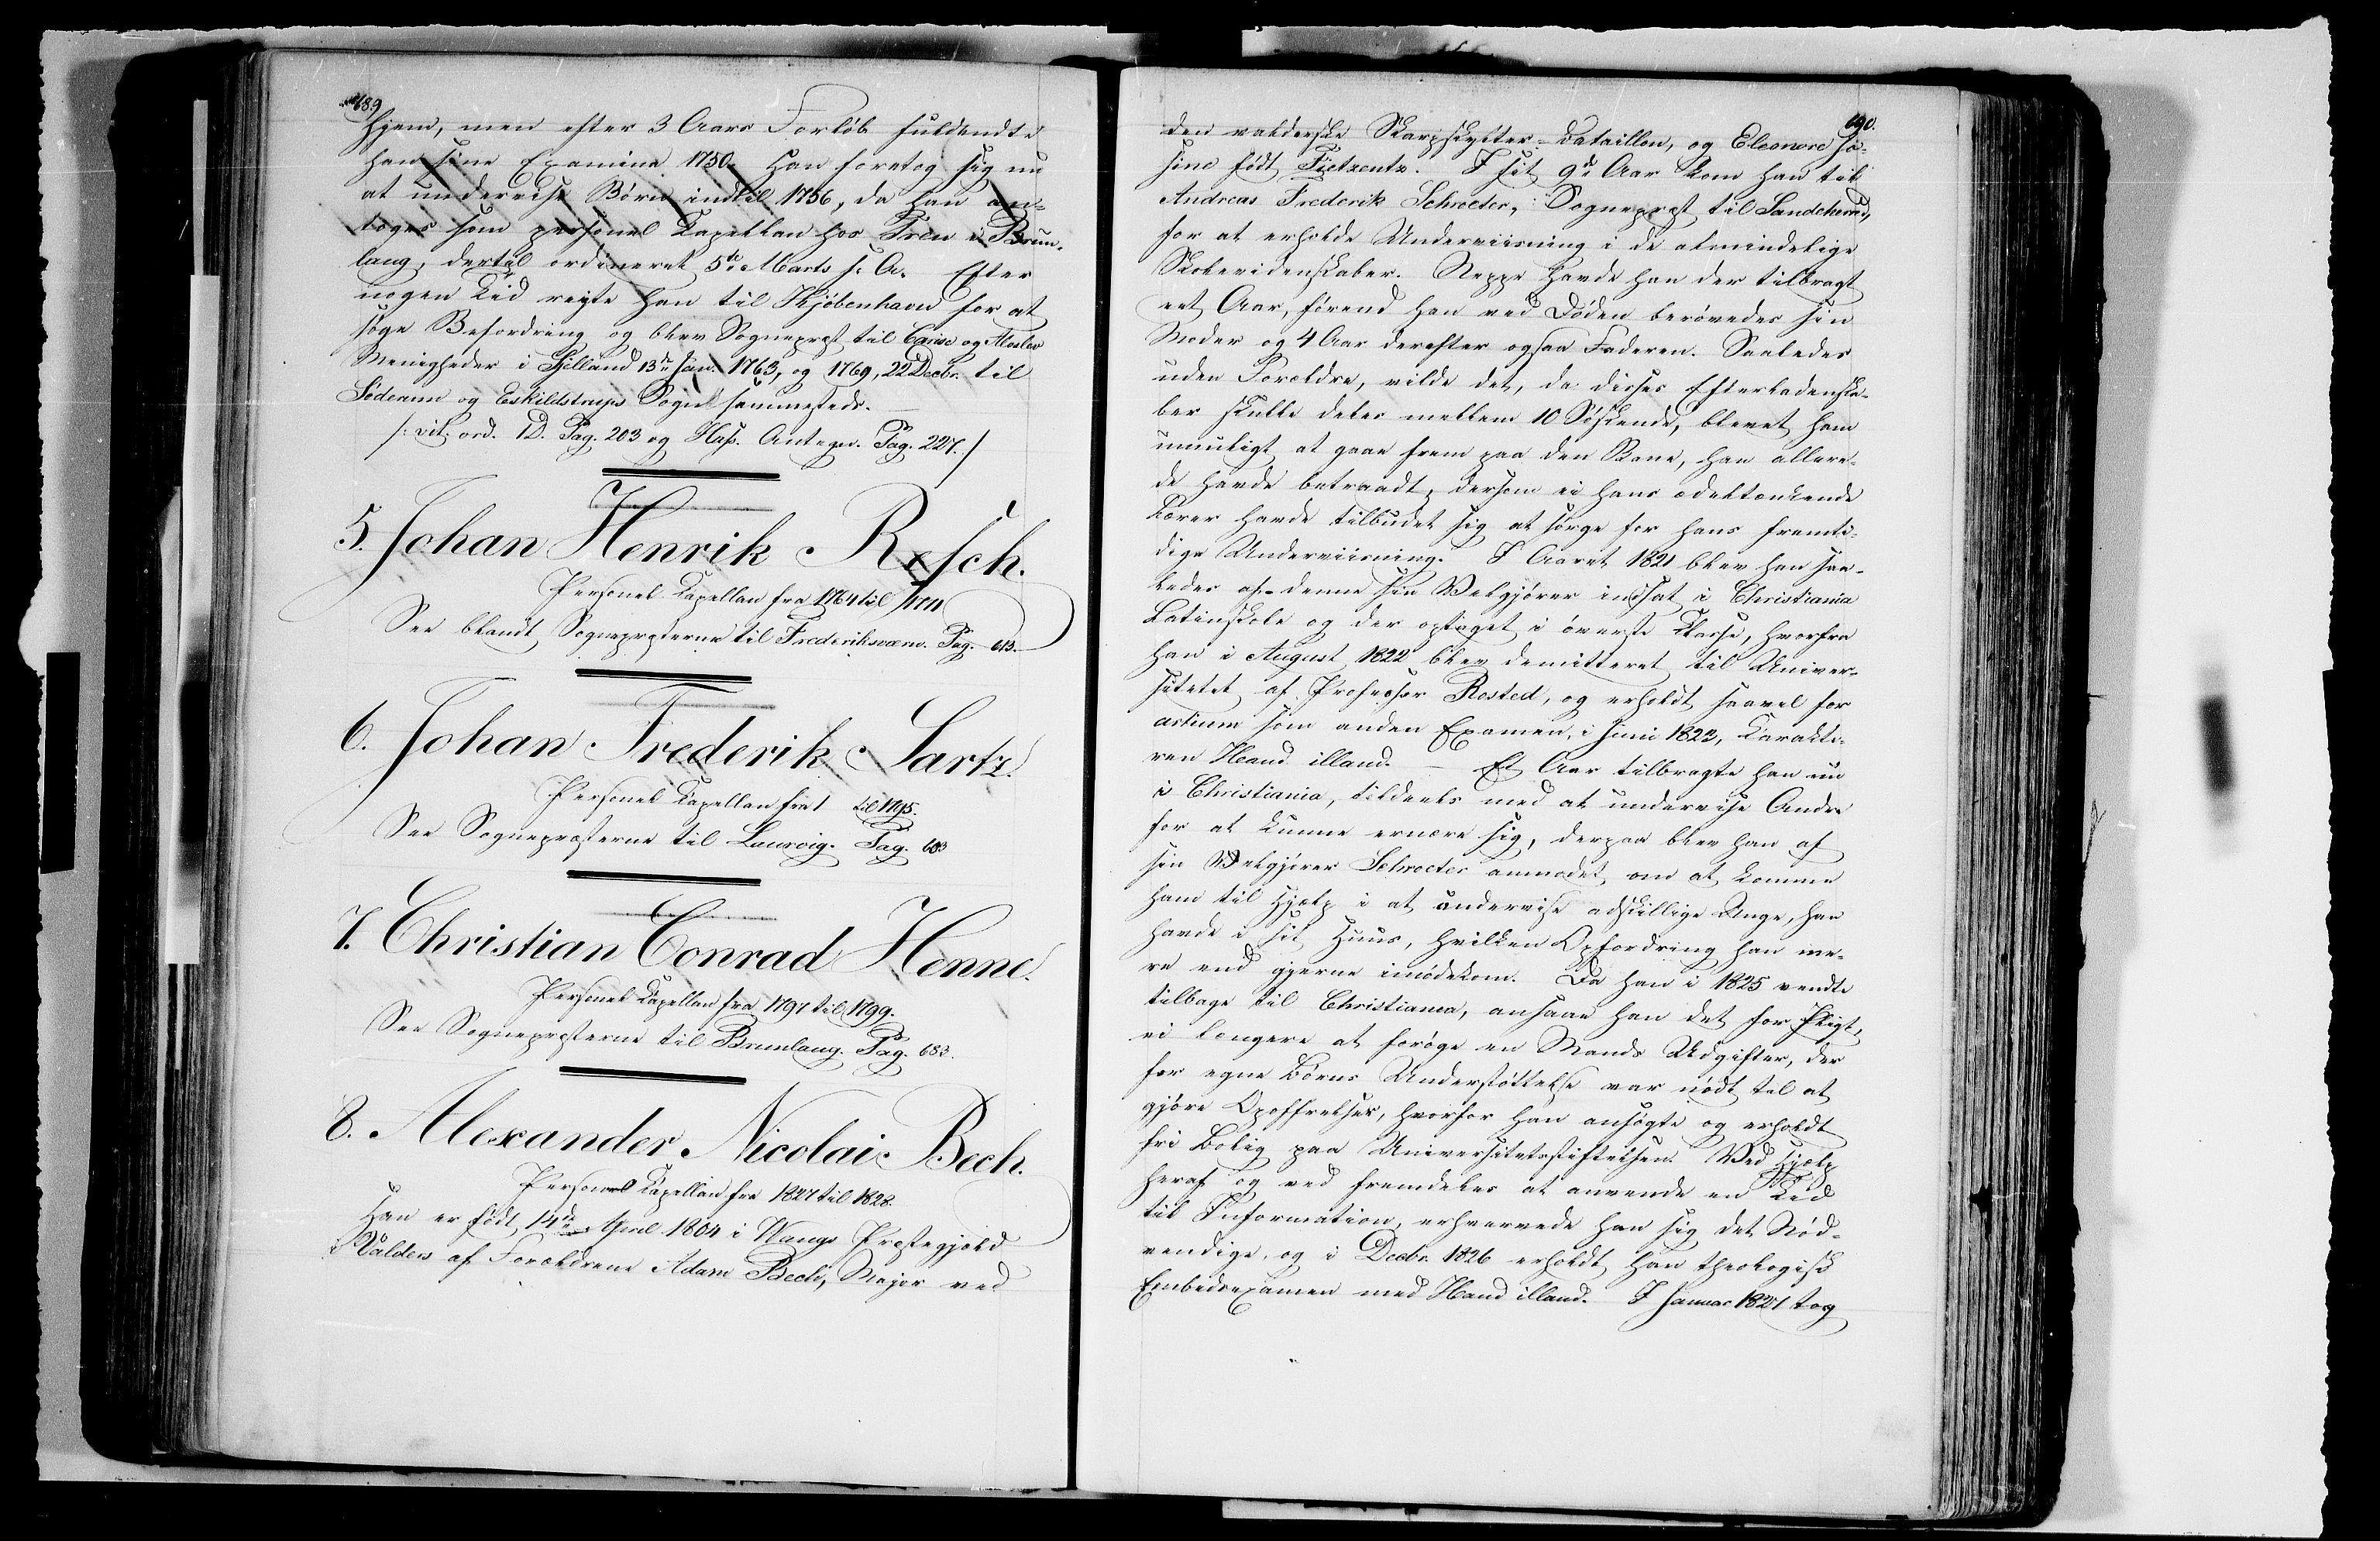 689
hjem, men efter 3 Aars Forløb fuldendte
han sine Examina 1750. Han foretog sig nu
at undervise Børn indtil 1756, da han an-
toges som personel Kapellan hos Tren i Brun-
laug, dertil ordineret 5te Marts s. A. Efter
nogen Tid reyste han til Kjøbenhavn for at
søge Befordring og blev Sognepræst til og
Menigheder i Sjelland 13de Jan. 1763, og 1769, 22 Decbr. til
og Eskildstrups Sogne sammesteds.
/: vit. ord. 1D. Pag. 203 og Antegn. Pag. 227. /
5. Johan Henrik Resch.
Personel Kapellan fra 1764 til 1771
See blandt Sognepræsterne til Frederiksværn. Pag. 613.
6. Johan Frederik Sartz.
Personel Kapellan fra 1 til 1795.
See Sognepræsterne til Laurvig. Pag. 683
7. Christian Conrad Henne.
Personel Kapellan fra 1797 til 1799.
See Sognepræsterne til Brunlaug. Pag. 683.
8. Alexander Nicolai Bech.
Personel Kapellan fra 1827 til 1828.
Han er født 14de April 1804 i Wangs Præstegjæld
i Valders af Forældrene Adam Bech, Major ved
690.
den valderske Skarpskytter-Bataillon, og Eleonore Jo-
sine født Tietzentz. I sit 9de Aar kom han til
Andreas Frederik Schroeter, Sognepræst til Sandeherred,
for at erholde Underviisning i de almindelige
Skolevidenskaber. Neppe havde han der tilbragt
eet Aar, førend han ved Døden berøvedes sin
Moder og 4 Aar derefter ogsaa Faderen. Saaledes
uden Forældre, vilde det, da disses Efterladenska-
ber skulle deles mellem 10 Søskende, blevet ham
umuligt at gaae frem paa den Bane, han allere-
de havde betraadt, dersom ei hans ædeltænkende
Lærer havde tilbudet sig at sørge for hans fremti-
dige Underviisning. I Aaret 1821 blev han saa-
ledes af denne sin Velgjører indsat i Christiania
Latinskole og der optaget i øverste Klasse, hvorfra
han i August 1822 blev demitteret til Univer-
sitetet af Professor Rosted, og erholdt saavel for
artium som anden Examen, i Juni 1823, Karakte-
ren Haud illaud. – Et Aar tilbragte han nu
i Christiania, tildeels med at undervise Andre
for at kunne ernære sig, derpaa blev han af
sin Velgjører Schroeter anmodet om at komme
ham til Hjælp i at undervise adskillige Unge, han
havde i sit Huus, hvilken Opfordring han me-
re end gjerne imødekom. Da han i 1825 vendte
tilbage til Christiania, ansaae han det for Pligt,
ei længere at forøge en Mands Udgifter, der
for egne Børns Understøttelse var nødt til at
gjøre Opoffrelser, hvorfor han ansøgte og erholdt
fri Bolig paa Universitetsstiftelsen. Ved Hjælp
heraf og ved fremdeles at anvende en Tid
til Information, erhvervede han sig det Nød-
vendige, og i Decbr. 1826 erholdt han theologisk
Embedsexamen med Haud illaud. I Januar 1827 tog